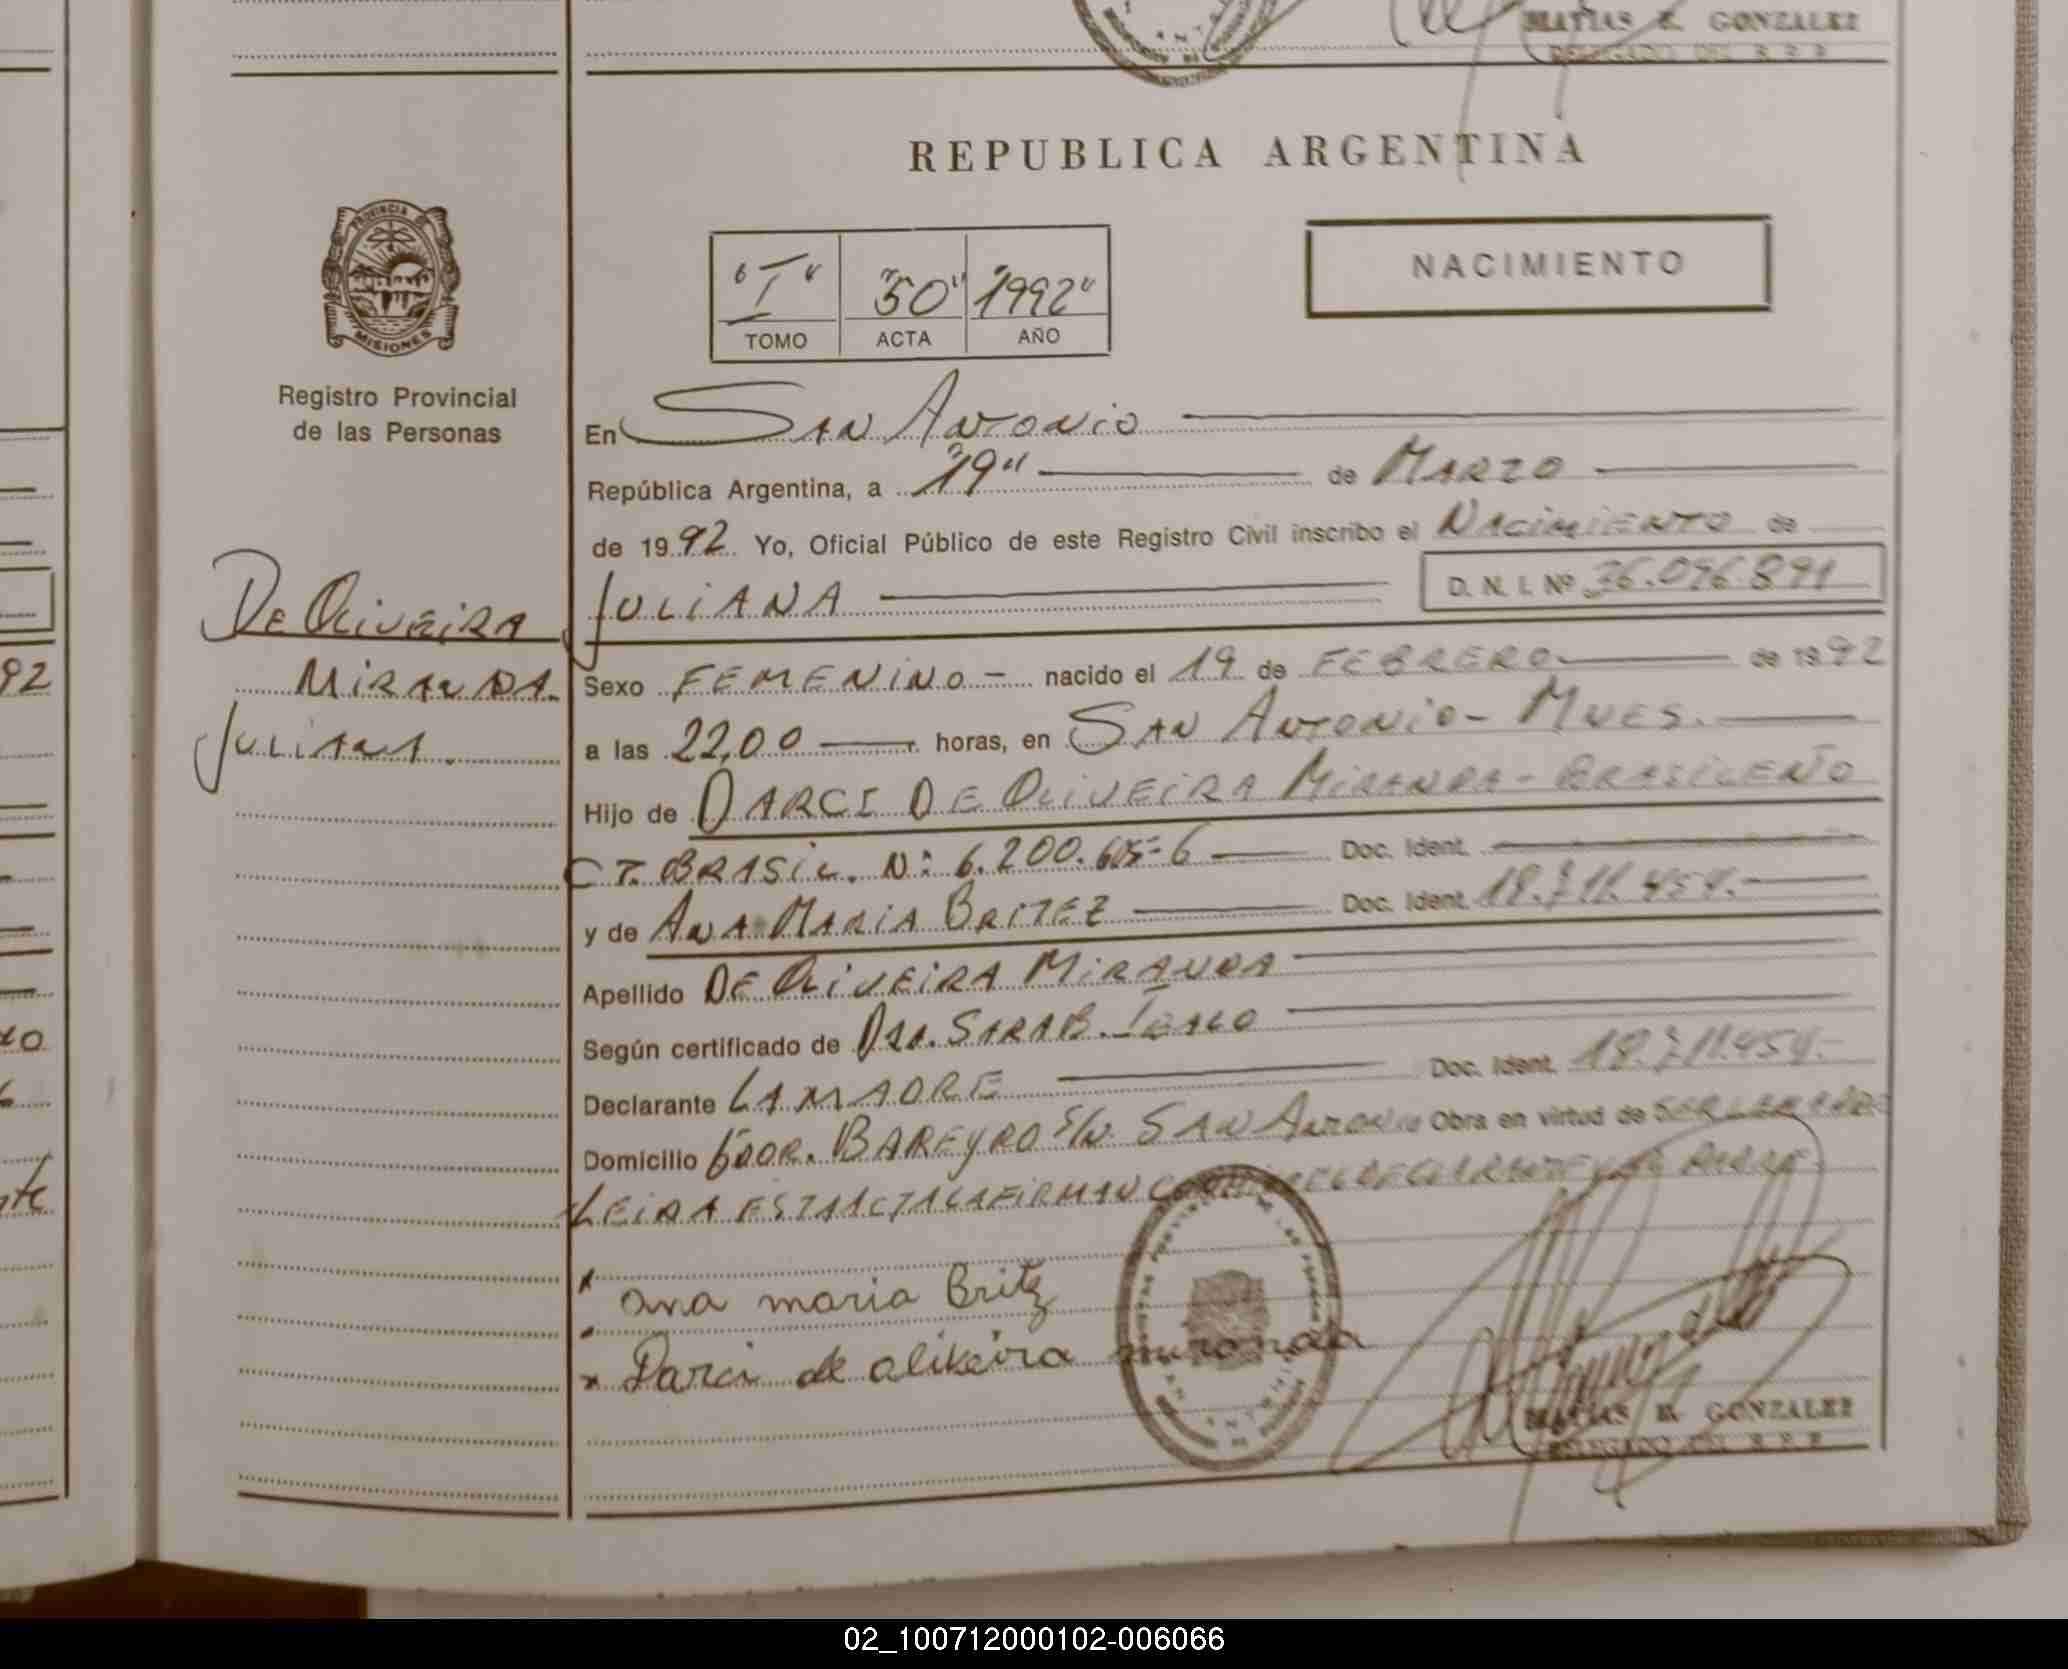 MATIAS E. GONZALEZ
DELEGADO DEL R.P.P.
REPUBLICA ARGENTINA
PROVINCIA DE
MISIONES
Registro Provincial
de las Personas
"I" "50" "1992"
TOMO ACTA AÑO
NACIMIENTO
En San Antonio
República Argentina, a "19" de Marzo
de 1992 Yo, Oficial Público de este Registro Civil inscribo el Nacimiento de
De Oliveira
Miranda
Juliana.
Juliana D. N. I. Nº 36.096.891
Sexo Femenino - nacido el 19 de Febrero de 1992
a las 22,00 horas, en San Antonio - Mnes.
Hijo de Darci De Oliveira Miranda - Brasileño
CT. Brasil. N: 6.200.605-6 Doc. Ident.
y de Ana Maria Britez Doc. Ident. 18.711.454.-
Apellido De Oliveira Miranda
Según certificado de Dra. Sara B.
Declarante La Madre Doc. Ident. 18.711.454.-
Domicilio Gdor. Bareyro S/N. San Antonio Obra en virtud de Ser la Madre
Leida esta acta la firman el declarante y el Padre
x ana maria Britz
x Darci de olikeira miranda
MATIAS E. GONZALEZ
DELEGADO DEL R.P.P.
92
02_100712000102-006066